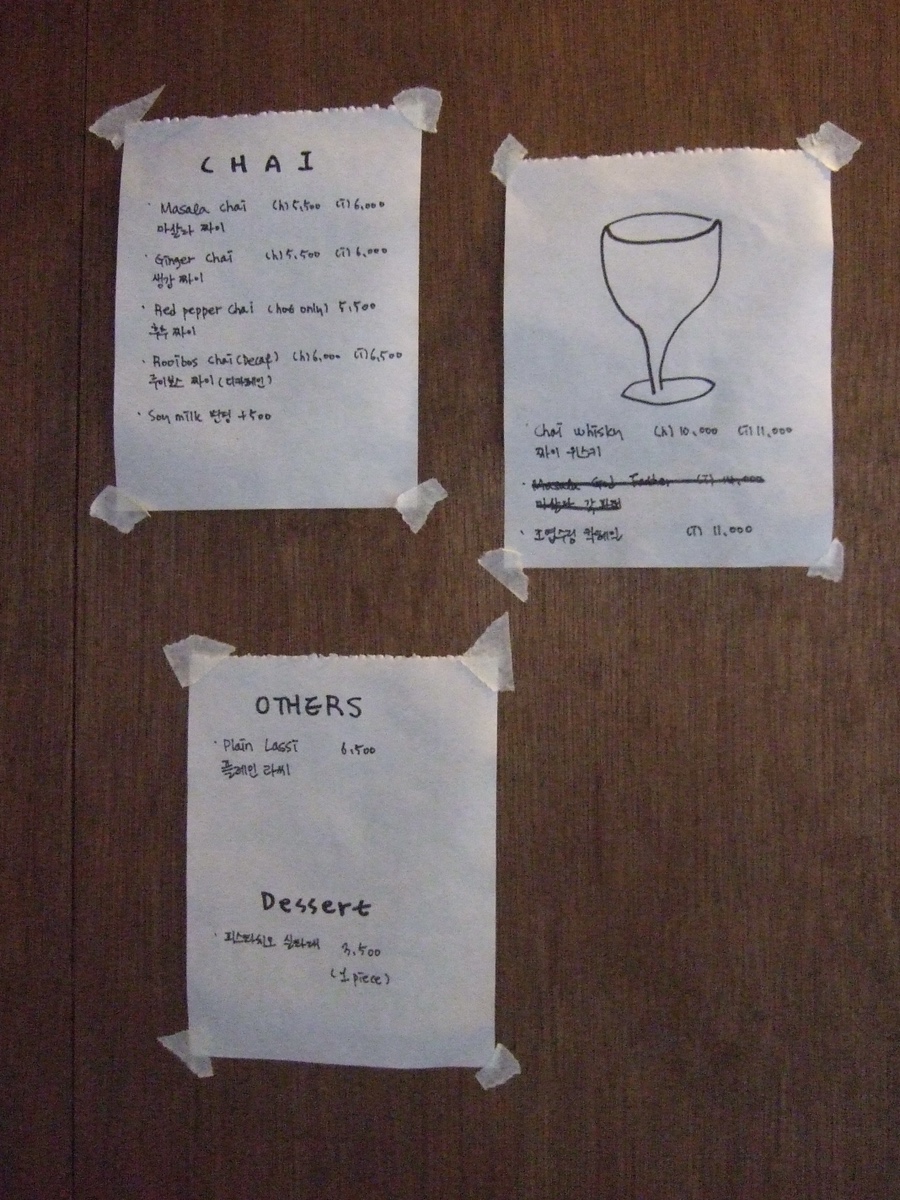 CHAI
· Masala chai (h) 5,500 (i) 6,000
마살라 짜이
· Ginger Chai (h) 5,500 (i) 6,000
생강 짜이
· Red pepper chai (hot only) 5,500
후추 짜이
· Rooibos chai (Decaf) (h) 6,000 (i) 6,500
루이보스 짜이 (디카페인)
· Soy milk 변경 +500
· Chai whisky (h) 10,000 (i) 11,000
짜이 위스키
· Masala God Father (i) 14,000
마살라 갓파더
· (i) 11,000
OTHERS
· Plain Lassi 6,500
플레인 라씨
Dessert
· 피스타치오 실타래 3,500
(1 piece)